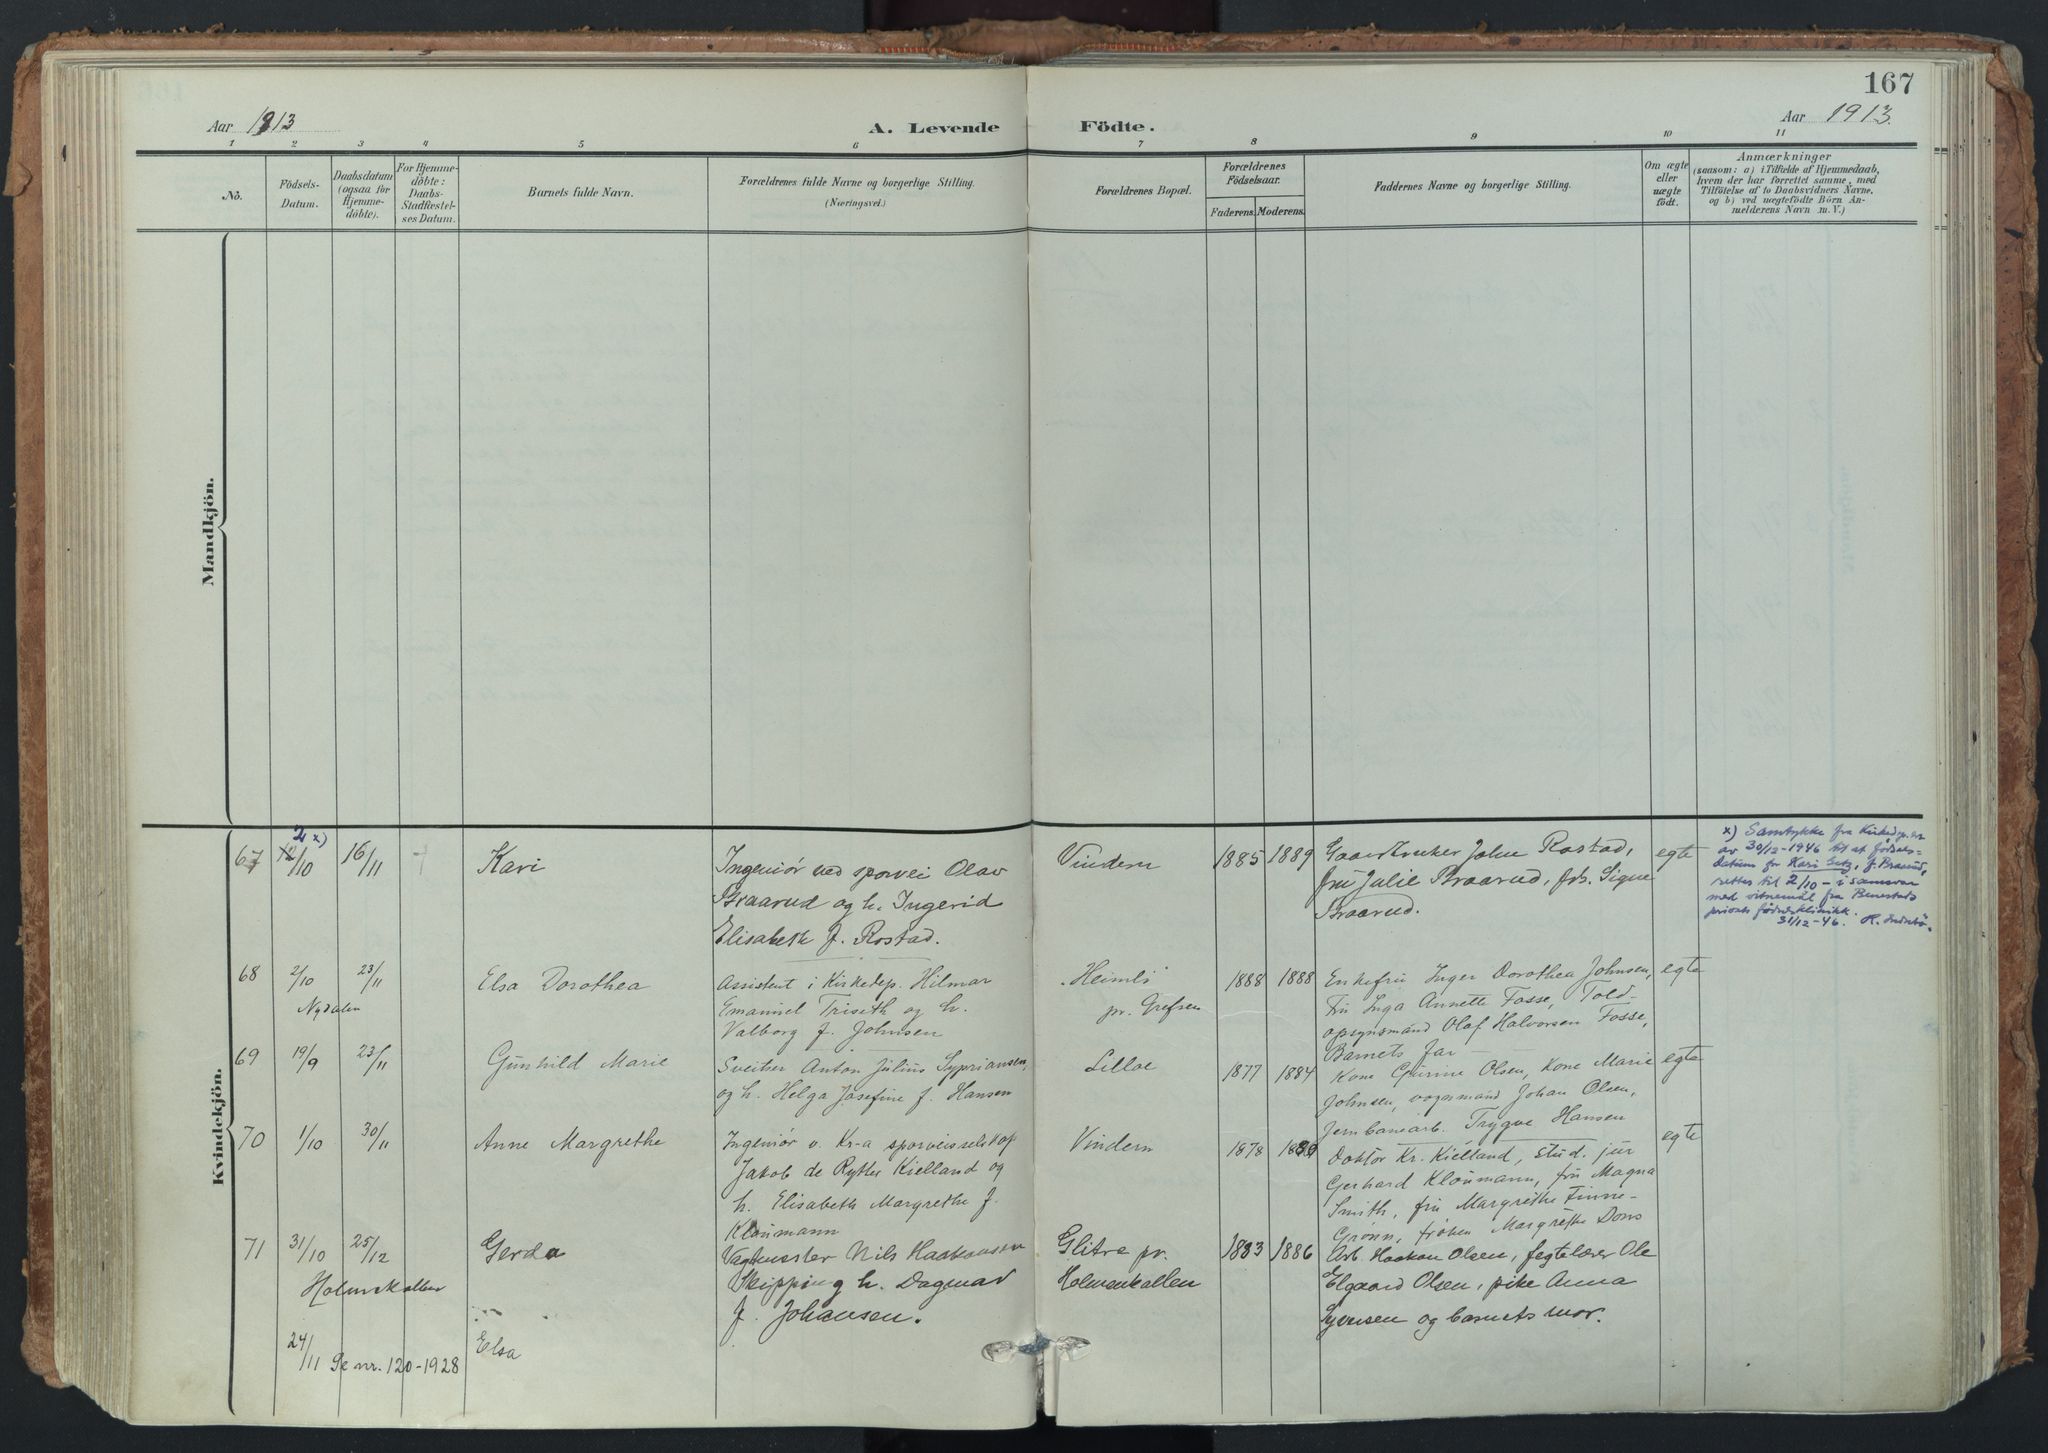 167
Aar 1913
A. Levende Födte.
Aar 1913.
1 2 3 4 5 6 7 8 9 10 11
No.
Födsels-
Datum.
Daabsdatum
(ogsaa for
Hjemme-
döbte).
For Hjemme-
döbte:
Daabs-
Stadfæstel-
ses Datum.
Barnets fulde Navn.
Forældrenes fulde Navne og borgerlige Stilling.
(Næringsvei.)
Forældrenes Bopæl.
Forældrenes
Födselsaar.
Faderens. Moderens.
Faddernes Navne og borgerlige Stilling.
Om ægte
eller
uægte
födt.
Anmærkninger
(saasom: a) i Tilfælde af Hjemmedaab,
hvem der har forrettet samme, med
Tilföielse af to Daabsvidners Navne,
og b) ved uægtefödte Börn An-
melderens Navn m. V.)
Mandkjön.
Kvindekjön.
2 x)
67 12/10 16/11 Kari
Ingeniör ved sporvei Olav
Braarud og h. Ingerid
Elisabeth f. Rostad.
Vindern 1885 1889
Gaardbruker John Rostad,
fru Julie Braarud, frk. Signe
Braarud.
egte
x) Samtykke fra Kirkedep.et
av 30/12-1946 til at födsels-
datum for Kari Getz, f. Braarud,
rettes til 2/10 - i samsvar
med vitnemål fra Benestads
private fødeklinikk.
31/12-46.
68 2/10 23/11 Elsa Dorothea
Nydalen
Assistent i Kirkedep. Hilmar
Emanuel Triseth og h.
Valborg f. Johnsen
Heimli
pr. Grefsen
1888 1888
Enkefru Inger Dorothea Johnsen,
Fru Inga Annette Fosse, Told-
opsynsmand Olaf Halvorsen Fosse,
Barnets far
egte
69 19/9 23/11 Gunhild Marie
Sveitser Anton Julius Sypriansen,
og h. Helga Josefine f. Hansen
Lilloe 1877 1884
Kone Gurine Olsen, Kone Marie
Johnsen, vognmand Johan Olsen,
Jernbanearb. Trygve Hansen
egte
70 1/10 30/11 Anne Margrethe
Ingeniør v. Kr-a sporveisselskap
Jakob de Rytter Kielland og
h. Elisabeth Margrethe f.
Kloumann
Vindern 1878
Doktor Kr. Kielland, stud. jur
Gerhard Kloumann, fru Magna
Smith, fru Margrethe Finne-
Grønn, frøken Margrethe Dons
egte
71 31/10 25/12 Gerda
Holmenkollen
Vagtmester Nils Haakonsen
Skipping h. Dagmar
f. Johansen.
Glitre pr.
Holmenkollen
1883 1886
Arb. Haakon Olsen, fegtelærer Ole
Elgaard Olsen, pike Anna
Syversen og barnets mor.
24/11 Elsa
Se nr. 120-1928